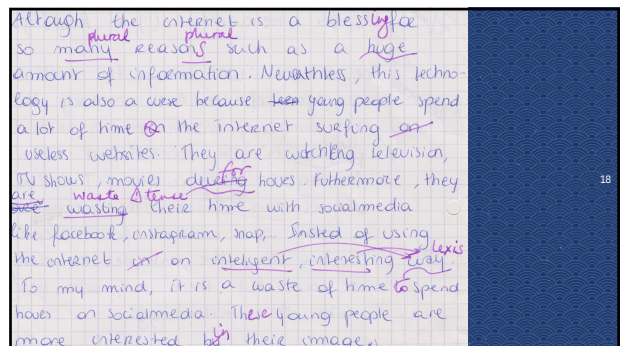 Although the internet is a blessing for
plural plural
so many reasons such as a huge
amount of information. Neverthless, this techno-
logy is also a curse because teen young people spend
a lot of time on the internet surfing on
useless websites. They are watching television,
for
TV shows, movies during hours. Futhermore, they
are waste tense
wasting their time with socialmedia
like facebook, instagram, snap, Insted of using
lexis
the internet in an inteligent, interesting way.
To my mind, it is a waste of time to spend
hours on socialmedia. These young people are
in
more interested by their image.
18